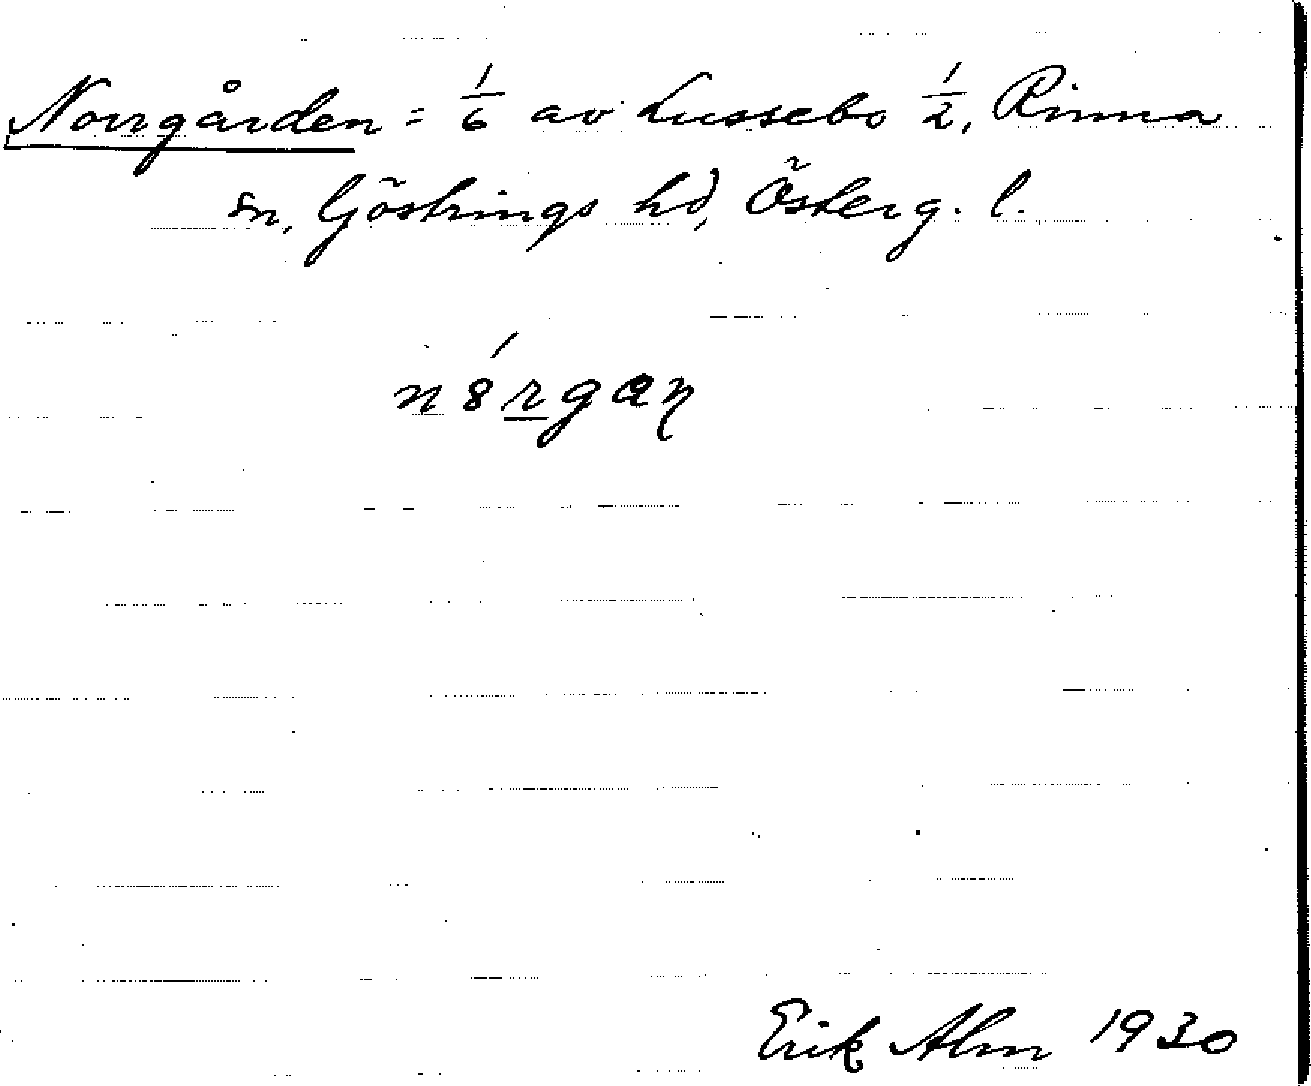 Norrgården = 1/6 av Lussebo 1/2, Rinna
sn, Göstrings hd, Österg. l.
n8́rgaŋ
Erik Alm 1930